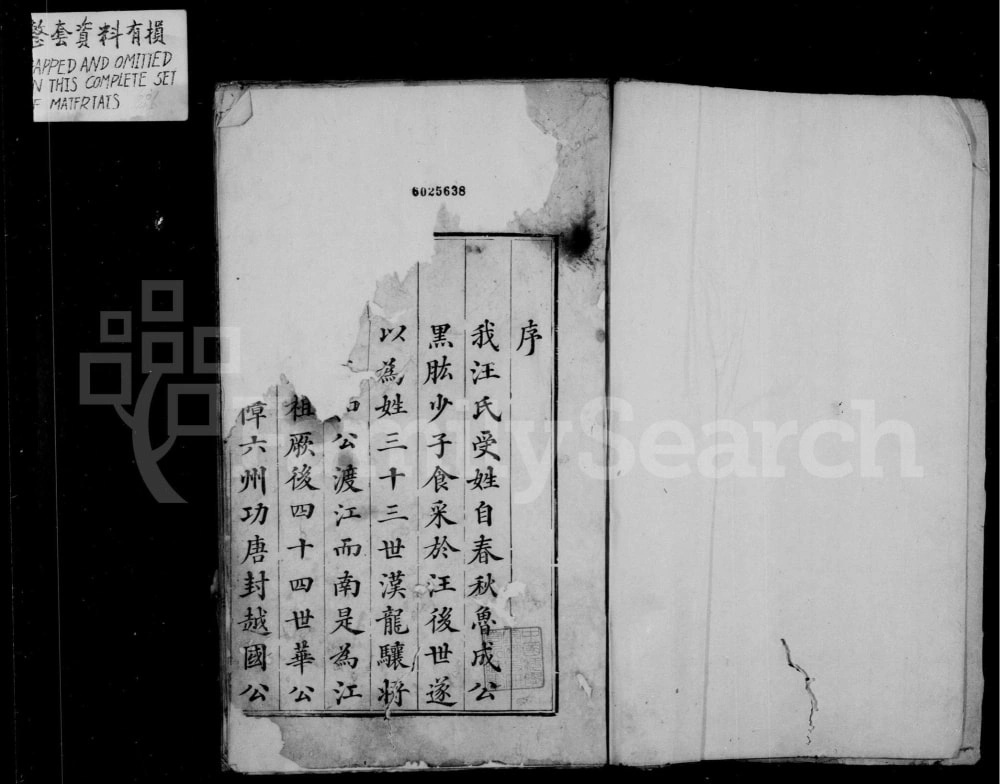 整套資料有損
APPED AND OMITTED
N THIS COMPLETE SET
F MATERIALS
6025638
序
我汪氏受姓自春秋魯成公
黑肱少子食采於汪後世遂
以為姓三十三世漢龍驤將
公渡江而南是為江
祖厥後四十四世華公
障六州功唐封越國公
FamilySearch